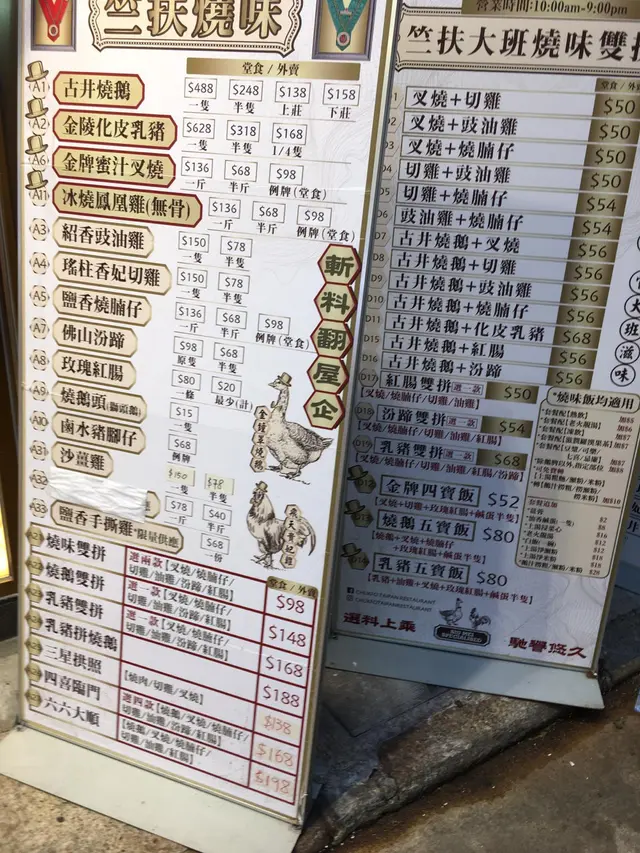 竺扶燒味
堂食 / 外賣
A1 古井燒鵝 $488 一隻 $248 半隻 $138 上莊 $158 下莊
A2 金陵化皮乳豬 $628 一隻 $318 半隻 $168 1/4隻
A6 金牌蜜汁叉燒 $136 一斤 $68 半斤 $98 例牌(堂食)
A11 冰燒鳳凰雞(無骨) $136 一斤 $68 半斤 $98 例牌(堂食)
A3 紹香豉油雞 $150 一隻 $78 半隻
A4 瑤柱香妃切雞 $150 一隻 $78 半隻
A5 鹽香燒腩仔 $136 一斤 $68 半斤 $98 例牌(堂食)
A7 佛山汾蹄 $98 原隻 $68 半隻
A8 玫瑰紅腸 $80 一條 $20 最少(計)
A9 燒鵝頭(獅頭鵝) $15 一隻
A10 鹵水豬腳仔 $68 例牌
A31 沙薑雞 $150 一隻 $78 半隻
A32 $78 一斤 $40 半斤
A33 鹽香手撕雞 *限量供應 $68 一份
斬料翻屋企
堂食 / 外賣
燒味雙拼 選兩款【叉燒/燒腩仔/切雞/油雞/汾蹄/紅腸】 $98
燒鵝雙拼 選一款【叉燒/燒腩仔/切雞/油雞/汾蹄/紅腸】 $148
乳豬雙拼 選一款【叉燒/燒腩仔/切雞/油雞/汾蹄/紅腸】 $168
乳豬拼燒鵝 $188
三星拱照 【燒肉/切雞/叉燒】 $138
四喜臨門 選四款【燒鵝/叉燒/燒腩仔/切雞/油雞/汾蹄/紅腸】 $168
六六大順 【燒鵝/叉燒/燒腩仔/切雞/油雞/紅腸】 $198
營業時間:10:00am-9:00pm
竺扶大班燒味雙拼
堂食 / 外
叉燒+切雞 $50
叉燒+豉油雞 $50
叉燒+燒腩仔 $50
切雞+豉油雞 $50
切雞+燒腩仔 $54
豉油雞+燒腩仔 $54
D7 古井燒鵝+叉燒 $56
D8 古井燒鵝+切雞 $56
D9 古井燒鵝+豉油雞 $56
D10 古井燒鵝+燒腩仔 $56
D11 古井燒鵝+化皮乳豬 $68
D15 古井燒鵝+紅腸 $56
D16 古井燒鵝+汾蹄 $56
D17 紅腸雙拼 選一款 $50
【叉燒/燒腩仔/切雞/油雞】
D18 汾蹄雙拼 選一款 $54
【叉燒/燒腩仔/切雞/油雞/紅腸】
D19 乳豬雙拼 選一款 $68
【叉燒/燒腩仔/切雞/油雞/紅腸/汾蹄】
金牌四寶飯 $52
【叉燒+切雞+玫瑰紅腸+鹹蛋半隻】
燒鵝五寶飯 $80
【燒鵝+切雞+叉燒+玫瑰紅腸+鹹蛋半隻】
乳豬五寶飯 $80
【乳豬+油雞+叉燒+玫瑰紅腸+鹹蛋半隻】
大班滋味
"燒味飯均適用
選料上乘
馳譽悠久